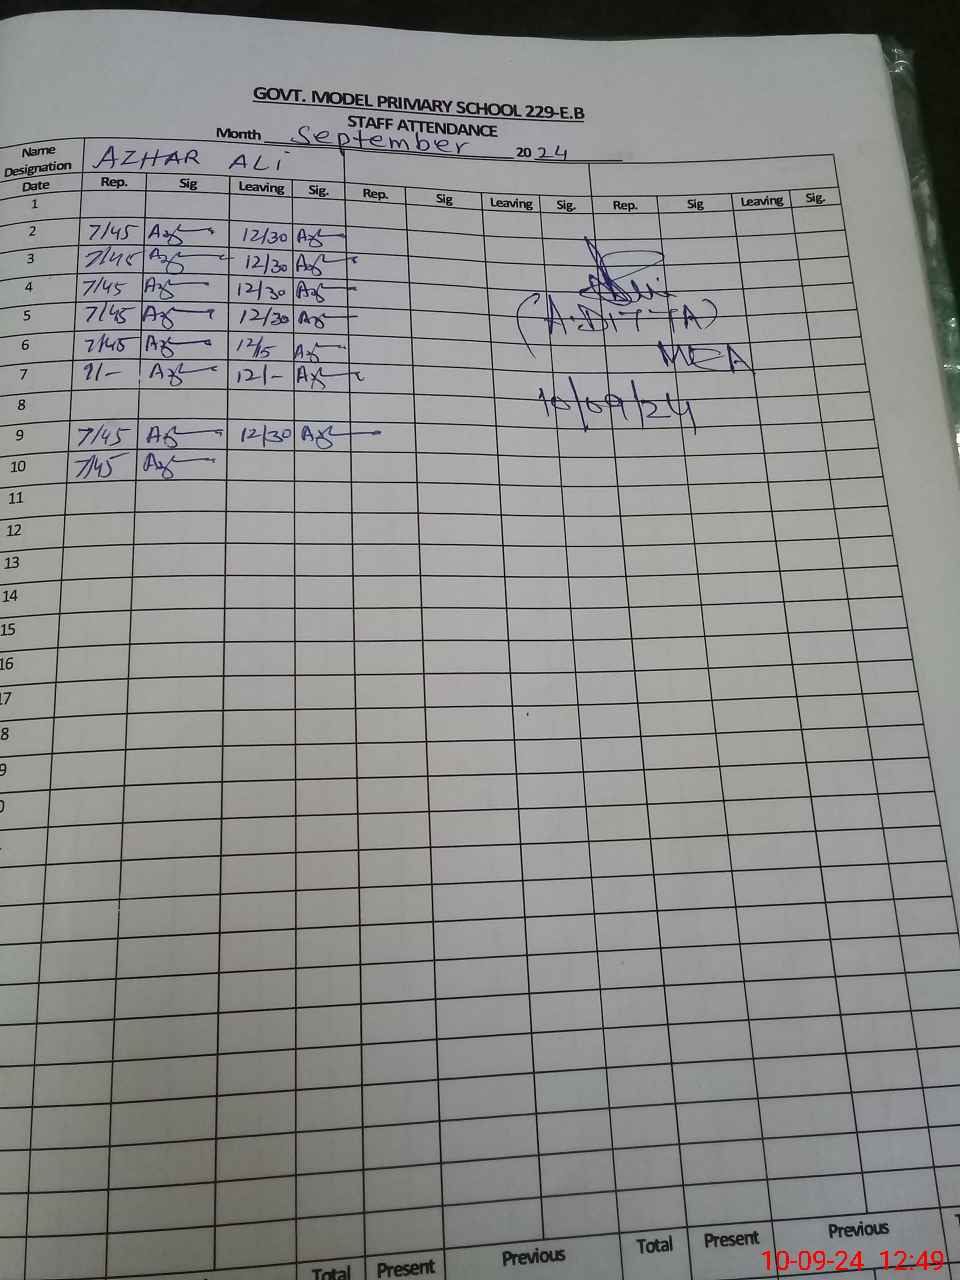 GOVT. MODEL PRIMARY SCHOOL 229-E.B
STAFF ATTENDANCE
Month September 2024
Name
Designation
AZHAR ALI
Date Rep. Sig Leaving Sig. Rep. Sig Leaving Sig. Rep. Sig Leaving Sig.
1
2 7/45 12/30
3 7/45 12/30
4 7/45 12/30
5 7/45 12/30
6 7/45 12/15
7 12/-
8
9 7/45 12/30
10 7/45
(A.DITTA)
MEA
10/09/24
11
12
13
14
15
16
17
8
9
Total Present Previous Total Present Previous
10-09-24 12:49